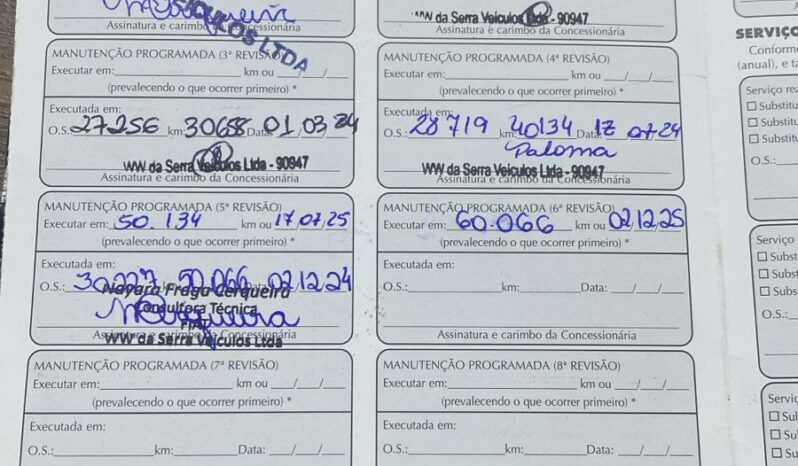 VEÍCULOS LTDA
Assinatura e carimbo da Concessionária
WW da Serra Veículos Ltda - 90947
Assinatura e carimbo da Concessionária
MANUTENÇÃO PROGRAMADA (3ª REVISÃO)
Executar em: km ou / /
(prevalecendo o que ocorrer primeiro) *
Executada em:
O.S.: 27256 km: 30658 Data: 01/03/24
WW da Serra Veículos Ltda - 90947
Assinatura e carimbo da Concessionária
MANUTENÇÃO PROGRAMADA (4ª REVISÃO)
Executar em: km ou / /
(prevalecendo o que ocorrer primeiro) *
Executada em:
O.S.: 28719 km: 40134 Data: 17/07/24
Paloma
WW da Serra Veículos Ltda - 90947
Assinatura e carimbo da Concessionária
MANUTENÇÃO PROGRAMADA (5ª REVISÃO)
Executar em: 50.134 km ou 17/07/25
(prevalecendo o que ocorrer primeiro) *
Executada em:
O.S.: 30227 km: 50.066 Data: 02/12/24
Nayara Fraga Cerqueira
Consultora Técnica
WW da Serra Veículos Ltda
Assinatura e carimbo da Concessionária
MANUTENÇÃO PROGRAMADA (6ª REVISÃO)
Executar em: 60.066 km ou 02/12/25
(prevalecendo o que ocorrer primeiro) *
Executada em:
O.S.: km: Data: / /
Assinatura e carimbo da Concessionária
MANUTENÇÃO PROGRAMADA (7ª REVISÃO)
Executar em: km ou / /
(prevalecendo o que ocorrer primeiro) *
Executada em:
O.S.: km: Data: / /
MANUTENÇÃO PROGRAMADA (8ª REVISÃO)
Executar em: km ou / /
(prevalecendo o que ocorrer primeiro) *
Executada em:
O.S.: km: Data: / /
SERVIÇO
Conforme
(anual), e ta
Serviço rea
Substitu
Substitu
Substitu
O.S.:
Serviço
Subst
Subst
Subst
O.S.:
Serviç
Sub
Sub
Su